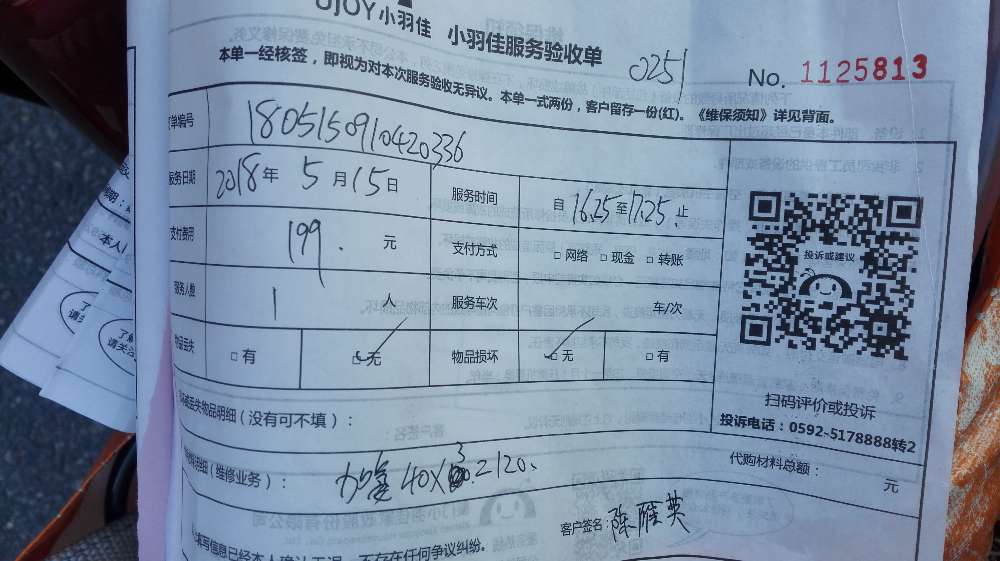 UJOY小羽佳 小羽佳服务验收单
0251
No. 1125813
本单一经核签，即视为对本次服务验收无异议。本单一式两份，客户留存一份(红)。《维保须知》详见背面。
订单编号 1805150910420336
服务日期 2018年 5月15日 服务时间 自16.25至17.25止
支付费用 199. 元 支付方式 □网络 □现金 □转账
服务人数 1 人 服务车次 车/次
物品丢失 □有 □无 物品损坏 □无 □有
投诉或建议
扫码评价或投诉
投诉电话：0592-5178888转2
丢失物品明细（没有可不填）：
明细（维修业务）： 40X3=120.
代购材料总额： 元
客户签名：陈雁英
填写信息已经本人确认无误，不存在任何争议纠纷。